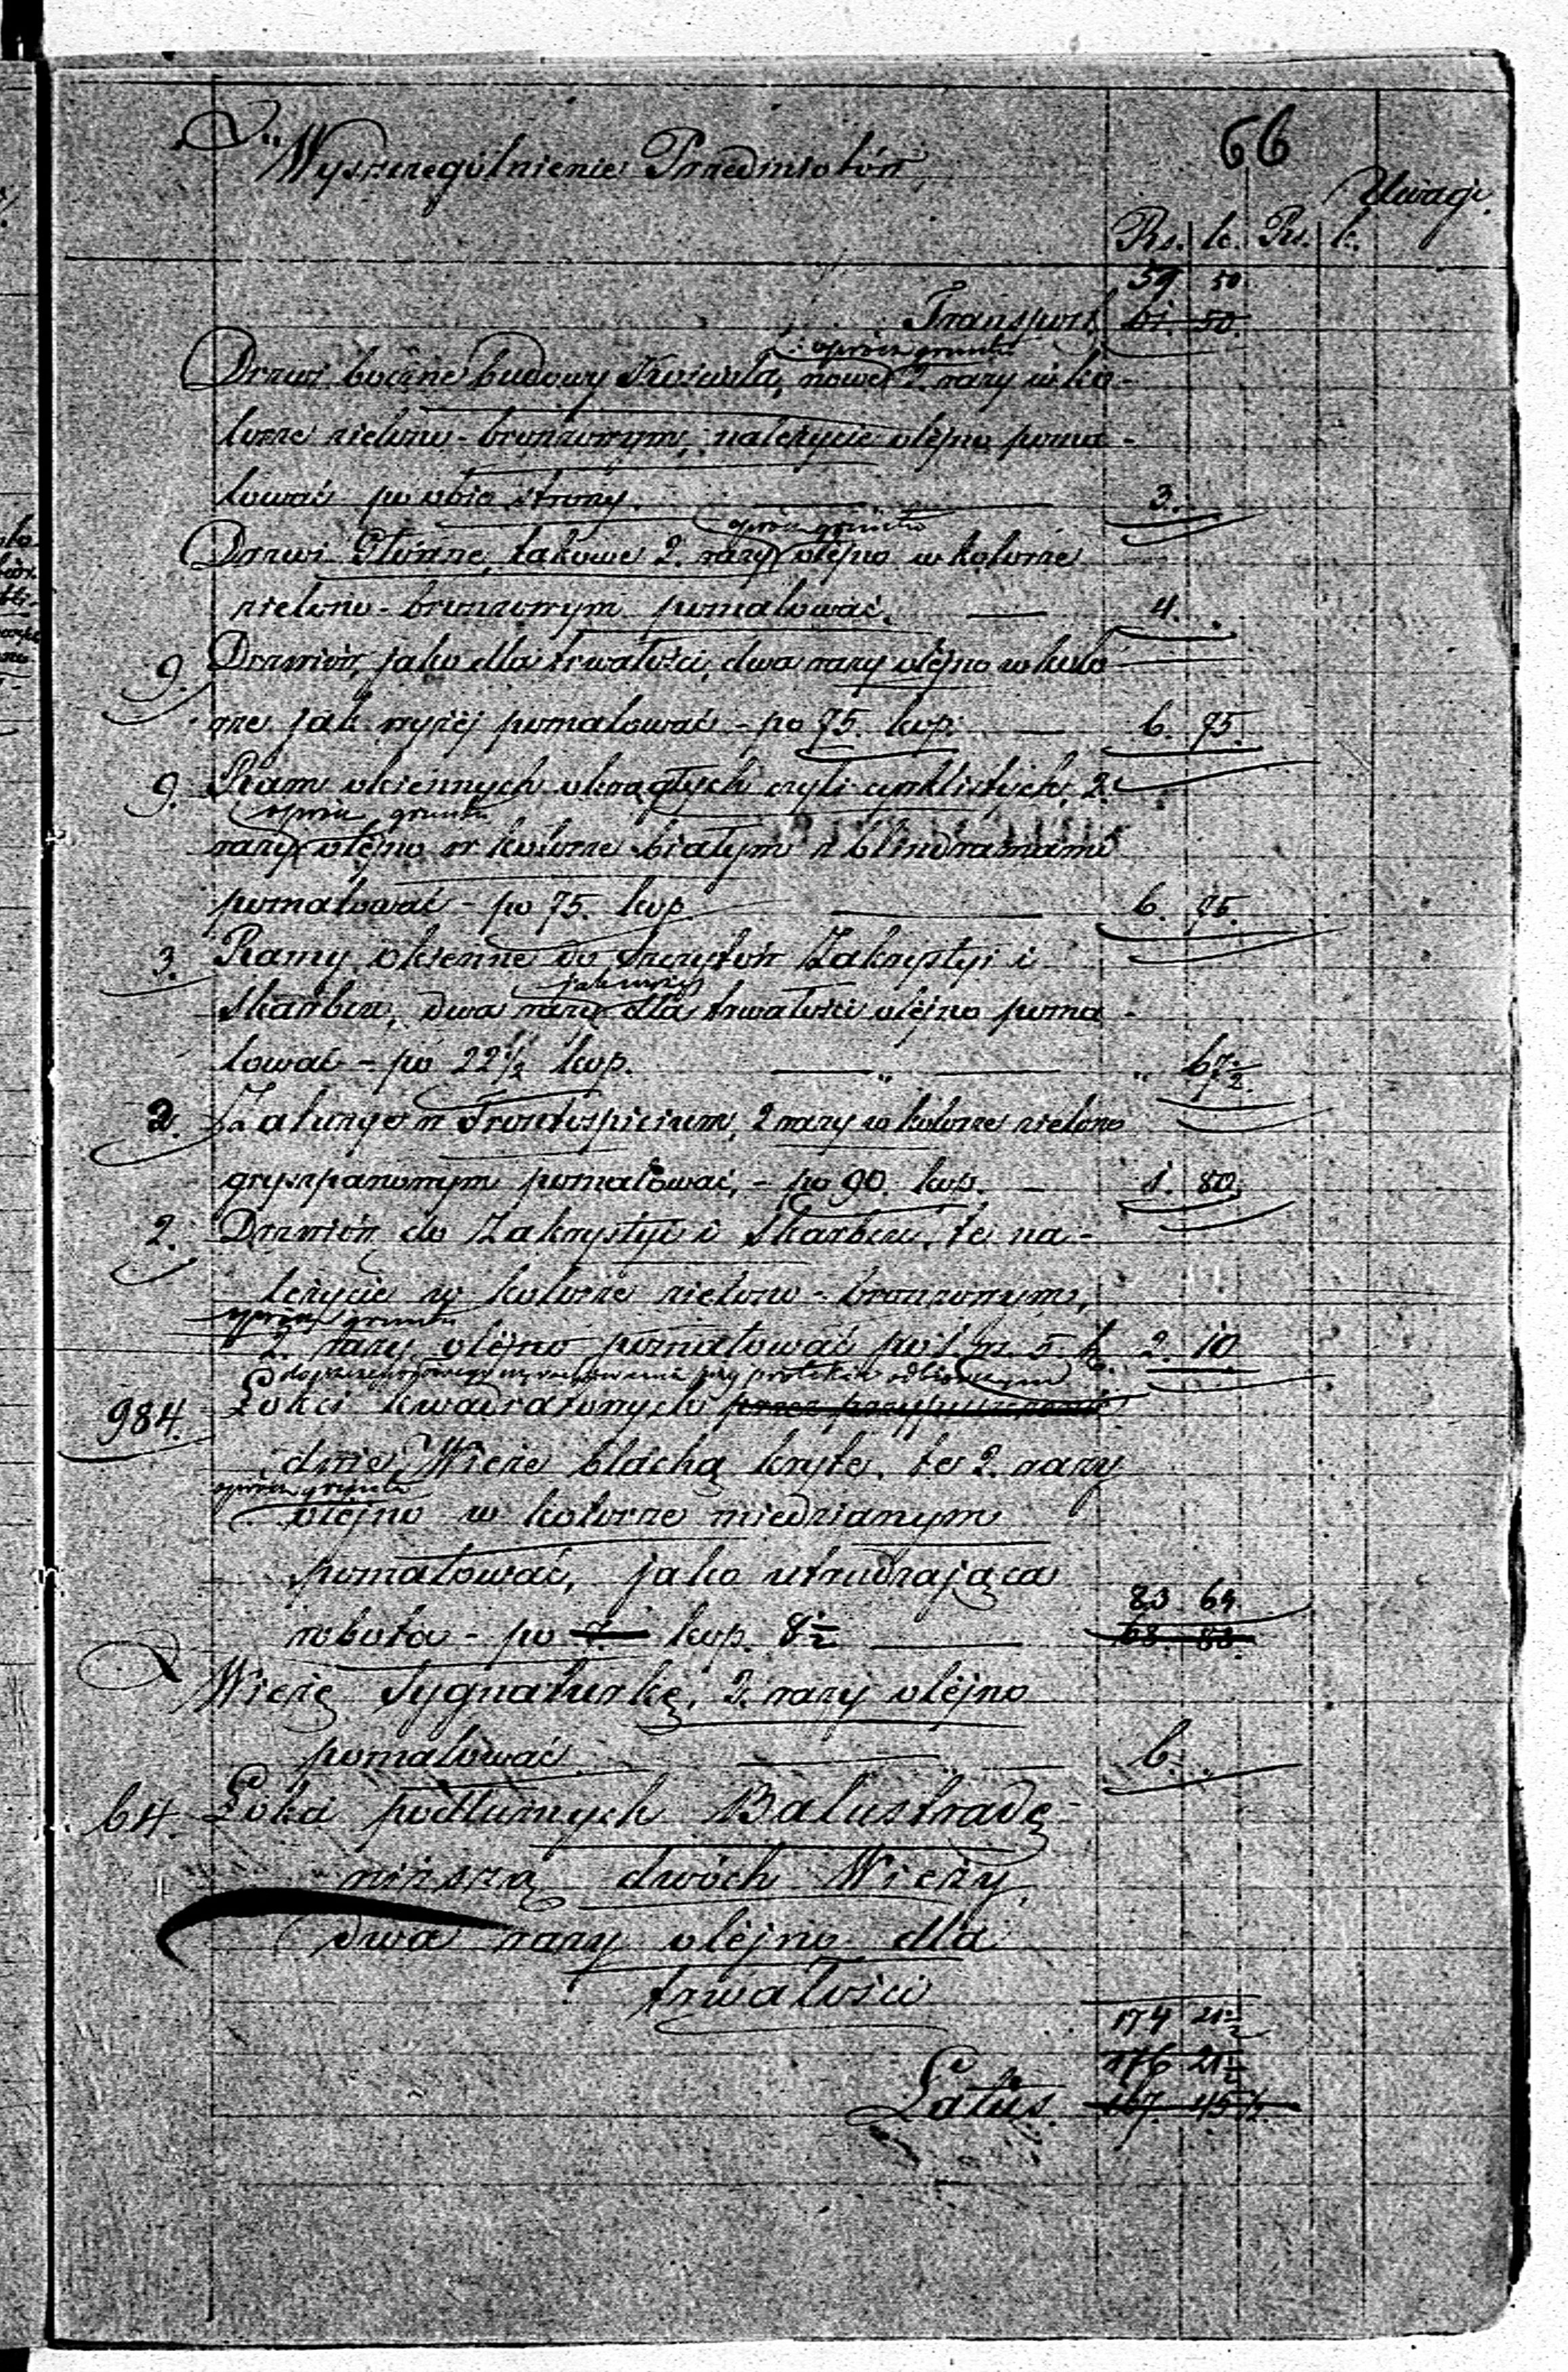 66
Wyszczególnienie Przedmiotów
Uwagi.
Rs. k. Rs. k.
59 50
Transport 61. 50.
oprócz gruntu
Drzwi boczne budowy Kościoła, nowe 2. razy w ko-
lorze zielono-bronzowym, należycie olejno poma-
lować po obie strony. 3.
oprócz gruntu
Drzwi Główne, takowe 2. razy olejno w kolorze
zielono-bronzowym pomalować. 4.
9. Drzwiów, jako dla trwałości, dwa razy olejno w kolo
rze jak wyżej pomalować - po 75. kop. 6. 75.
9. Ram okiennych okrągłych czyli cyrklistych, 2.
oprócz gruntu
razy olejno w kolorze białym z blindramami
pomalować - po 75. kop. 6. 75.
3. Ramy okienne do szczytów Zakrystyi i
jak wyżej
Skarbcu, dwa razy dla trwałości olejno poma-
lować - po 22 1/2 kop. " " 67 1/2.
2. Żaluzyów Frontispicium, 2 razy w kolorze zielono
gryszpanowym pomalować, - po 90. kop. 1. 80.
2. Drzwiów do Zakrystyi i Skarbcu, te na-
leżycie w kolorze zielono-bronzowym,
oprócz gruntu
2. razy olejno pomalować po 1. rs. 5. k. 2. 10.
984. Łokci kwadratowych
dwie Wieże blachą kryte, te 2. razy
oprócz gruntu
olejno w kolorze miedzianym
pomalować, jako utrudzająca
83 64
robota - po 7. kop. 8 1/2 68 88.
Wieżę Sygnaturkę, 2. razy olejno
pomalować. 6.
64. Łokci podłużnych Balustradę
niższą dwóch Wieży,
dwa razy olejno dla
trwałości
174 21 1/2
176 21 1/2
Latus. 167. 45 1/2.